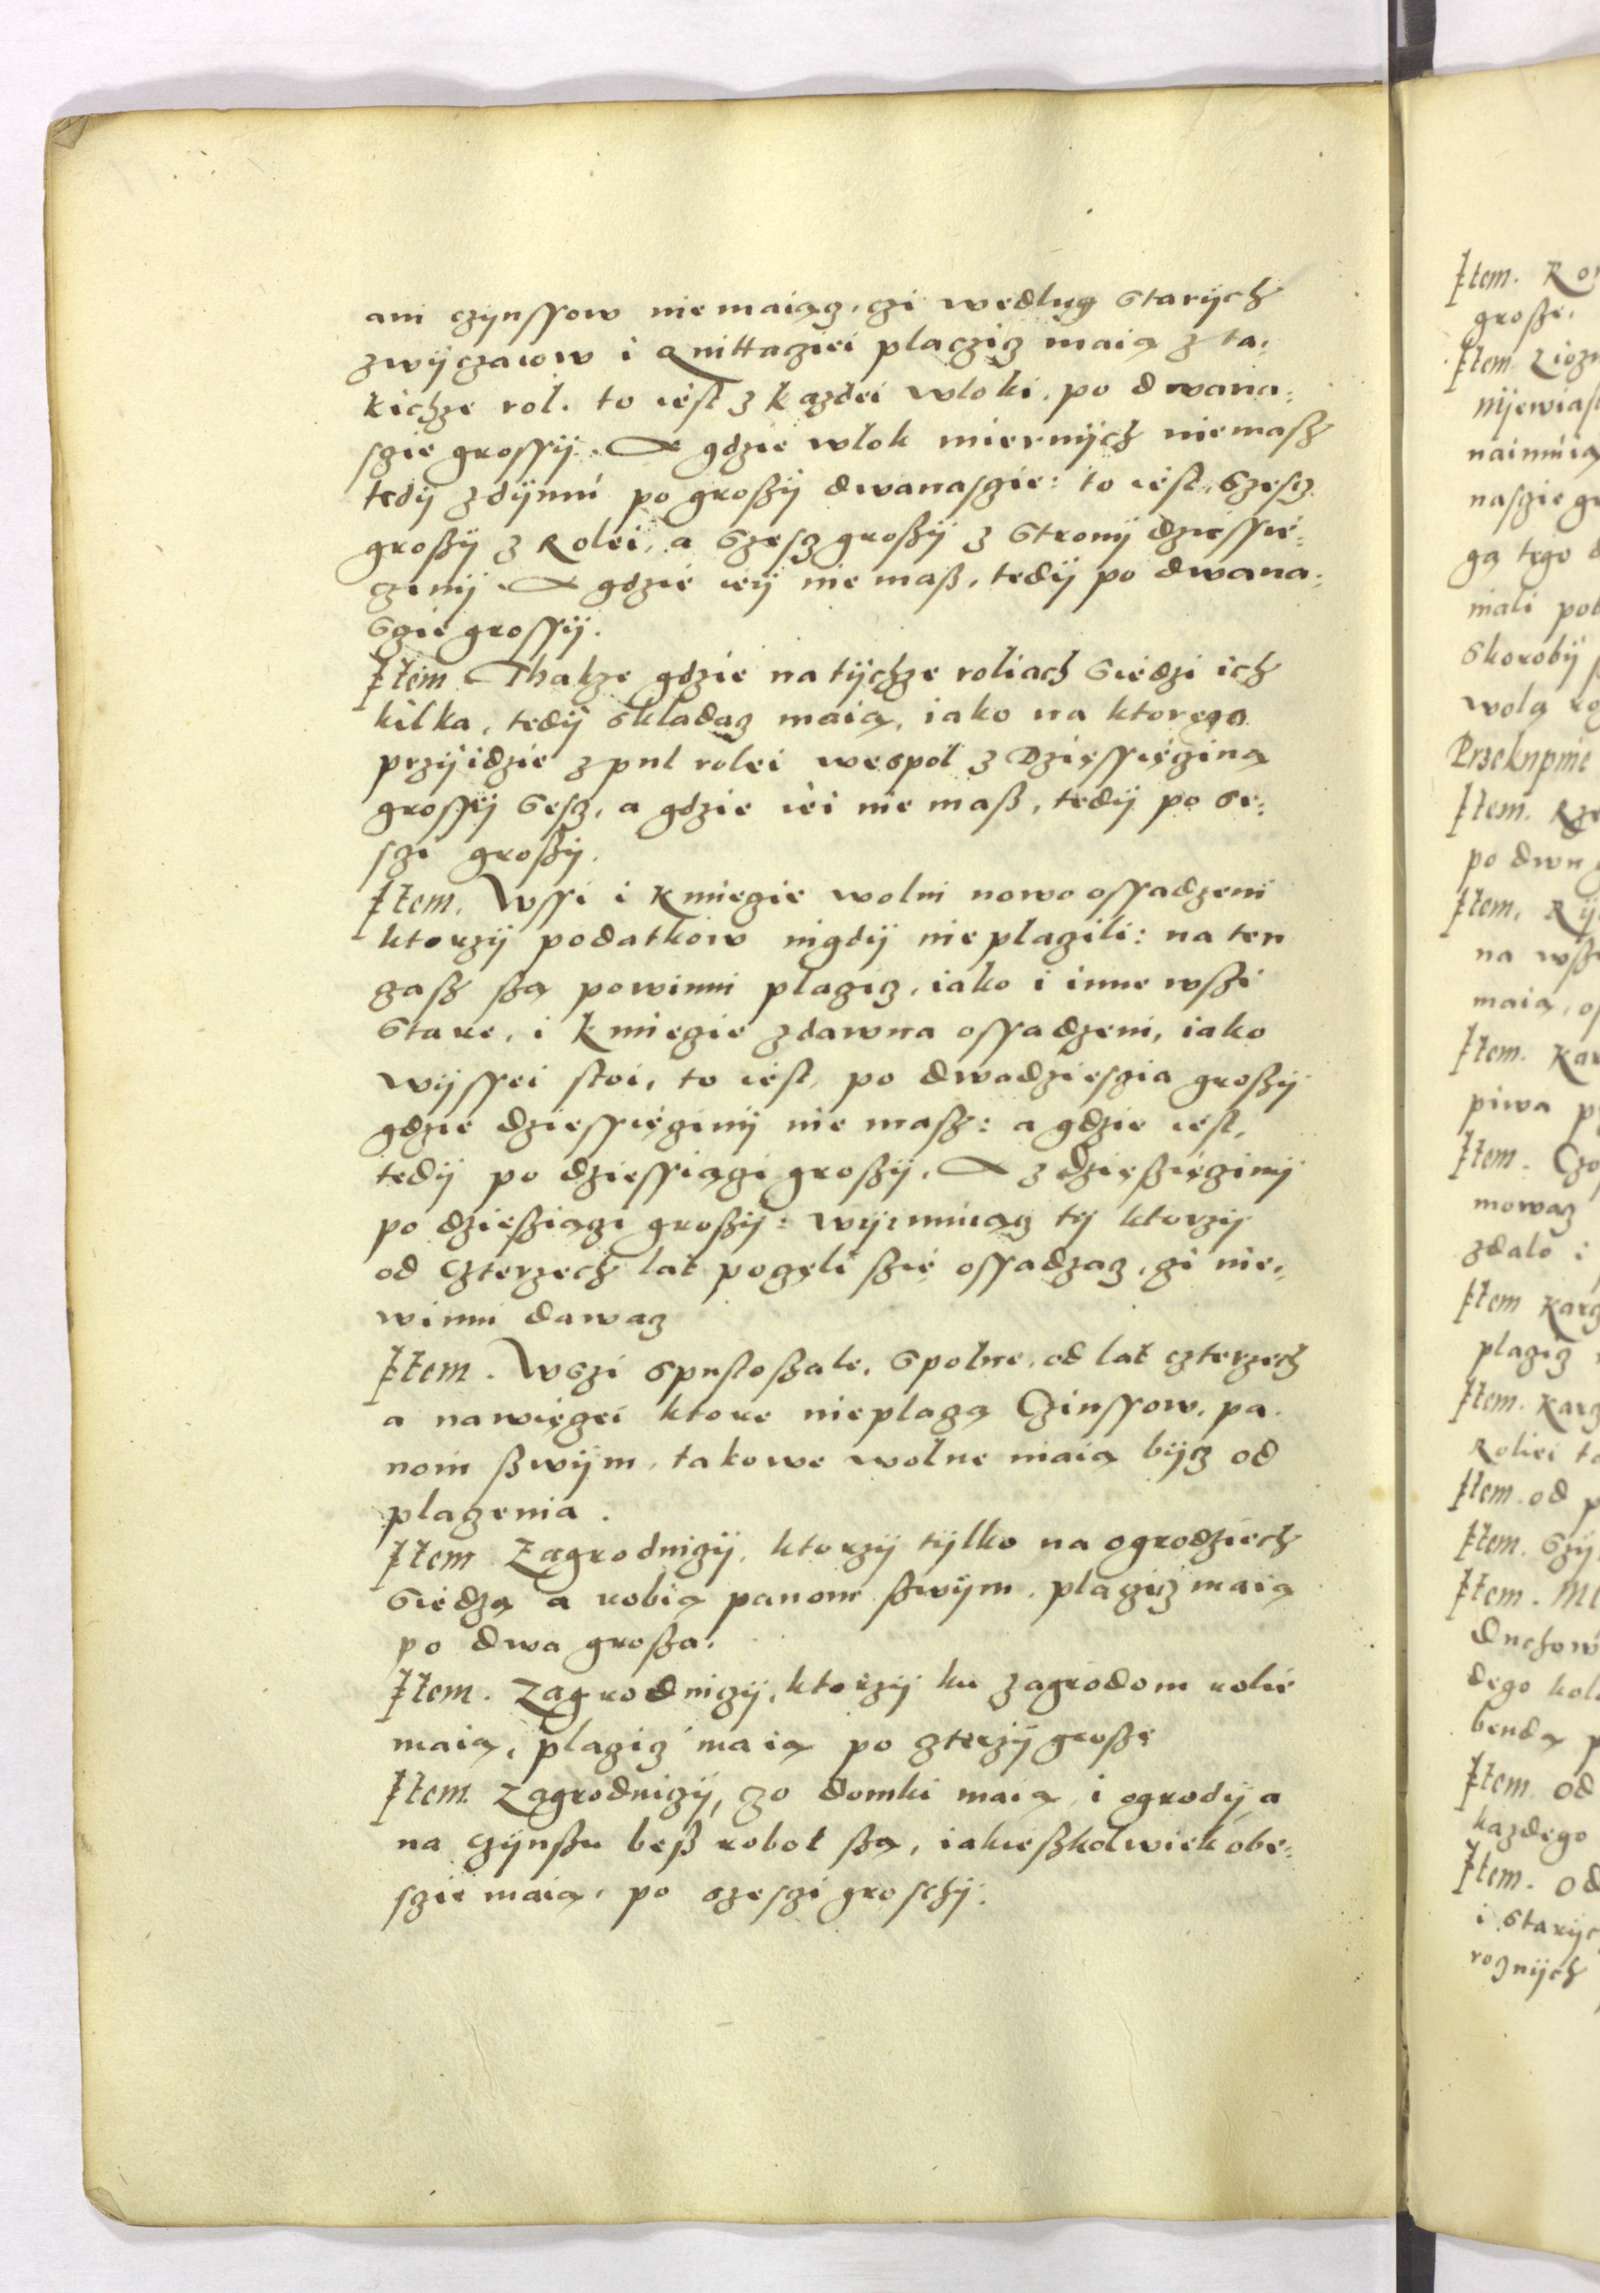 ani czÿnssow nie maiącz, czi według starÿch
zwÿczaiow i Quittacziei placzicz maią z ta:
kichze rol. to iest z kazdei wloki, po dwana:
szcie grossÿ. A gdzie wlok miernÿch niemasz
tedÿ z dÿmu po groszÿ dwanascie: to iest szesz
groszÿ z Rolei, a szesz groszÿ z stronÿ dziessie:
czinÿ. A gdzie ieÿ nie masz, tedÿ po dwana:
szie grossÿ.
Item Thakze gdzie na tÿchze roliach siedzi ich
kilka, tedÿ skladacz maią, iako na ktorego
przÿidzie z pul rolei wespol z Dzięssięcziną
grossÿ sesz, a gdzie iei nie masz, tedÿ po se:
szi groszÿ.
Item. Wssi i Kmiecie wolni nowo ossadzeni
ktorzÿ podatkow nigdÿ nie placzili: na ten
czasz szą powinni placzicz, iako i inne wszi
stare, i Kmiecie zdawna ossadzeni, iako
wÿssei stoi, to iest, po dwadziescia groszÿ
gdzie dziessięczinÿ nie masz: a gdzie iest,
tedÿ po dziessiączi groszÿ. A z dzięszięczinÿ
po dziesziączi groszÿ: wÿimuiącz tÿ ktorzÿ
od czterzech lat poczęli szie ossadzacz, czi nie:
winni dawacz
Item. Wszi spustoszale, spolne, od lat czterzech
a nawięczei ktore nieplaczą Czinssow, pa:
nom szwÿm, takowe wolne maią bÿcz od
placzenia.
Item Zagrodniczÿ, ktorzÿ tÿlko na ogrodziech
siedzą a robią panom szwÿm, placzicz maią
po dwa grosza.
Item. Zagrodniczÿ, ktorzÿ ku zagrodom rolie
maią, placzicz maią po czterzÿ grosze
Item Zagrodniczÿ, czo domki maią i ogrodÿ a
na czÿnszu besz robot szą, iakieszkolwiek obe:
szie maią, po szeszi groschÿ.
Item.
grosze.
Item
naszie
tego
mali
skorobÿ
wolą
Item.
po dwu
Item.
na
maia,
Item.
piwa
Item.
mowacz
zdalo i
Item
placzicz
Item.
Roliei
Item. od
Item.
Item.
dego
bendą
Item. od
kazdego
Item. od
i starÿch
roznÿch